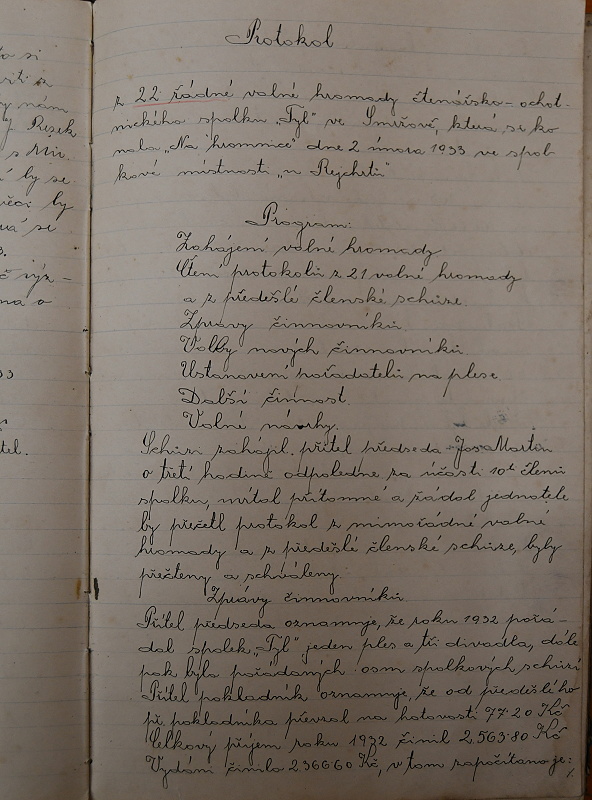 ta si
Rezek
s Mir.
by se
by
se
a o
33
tel.
Protokol
z 22 řádné valné hromady čtenářsko-ochot-
nického spolku „Tyl" ve Smiřově, která se ko-
nala „Na hromnice" dne 2 února 1933 ve spol-
kové místnosti „u Rejchrtů"
Program:
Zahájení valné hromady
Čtení protokolů z 21 valné hromady
a z předešlé členské schůze.
Zprávy činnovníků.
Volby nových činnovníků.
Ustanovení pořadatelů na plese.
Další činnost.
Volné návrhy.
Schůzi zahájil přítel předseda Jos. Martin
o třetí hodině odpoledne za účasti 10ti členů
spolku, uvítal přítomné a žádal jednatele
by přečetl protokol z mimořádné valné
hromady a z předešlé členské schůze, byly
přečteny a schváleny.
Zprávy činnovníků.
Přítel předseda oznamuje, že roku 1932 pořá-
dal spolek „Tyl" jeden ples a tři divadla, dále
pak byla pořádaných osm spolkových schůzí
Přítel pokladník oznamuje, že od předešlého
př. pokladníka převzal na hotovosti 77·20 Kč
Celkový příjem roku 1932 činil 2.563·80 Kč
Vydání činilo 2.366·60 Kč, v tom započítano je: